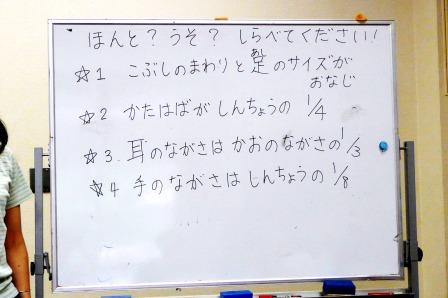 ほんと？うそ？ しらべてください！
☆1 こぶしのまわりと足(あし)のサイズが
おなじ
☆2 かたはばがしんちょうの 1/4
☆3. 耳のながさはかおのながさの1/3
☆4 手のながさはしんちょうの1/8